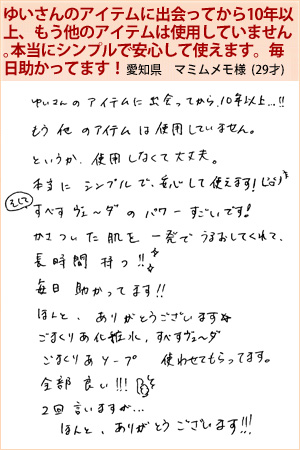 ゆいさんのアイテムに出会ってから10年以
上、もう他のアイテムは使用していません
。本当にシンプルで安心して使えます。毎
日助かってます！愛知県　マミムメモ様 (29才)
ゆいさんのアイテムに出会ってから、10年以上…!!
もう他のアイテムは使用していません。
というか、使用しなくて大丈夫。
本当にシンプルで、安心して使えます!
そして
すべすヴェ〜ダのパワーすごいです!
かさついた肌を一発でうるおしてくれて、
長時間持つ!!
毎日助かってます!!
ほんと、ありがとうございます☆
ごまくりあ化粧水、すべすヴェーダ
ごまくりあソープ 使わせてもらってます。
全部良い!!!
2回言いますが…
ほんと、ありがとうございます!!!